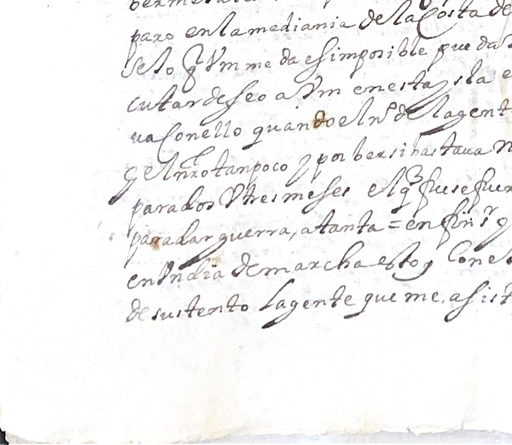 paro en la mediania de la Costa de
selo q Vm me da es imposible pueda
cutar deseo a Vm en esta ysla
va Con ello quando el no de la gent
q el nro tanpoco y por ver si bastava
para dos V tres meses el q fuese
para dar guerra, a tanta = en fin sr q
en Vn dia de marcha estoy Con
de sustento la gente que me asist